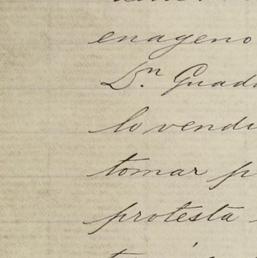 enageno
Dn. Guad
lo vendi
tomar p
protesta